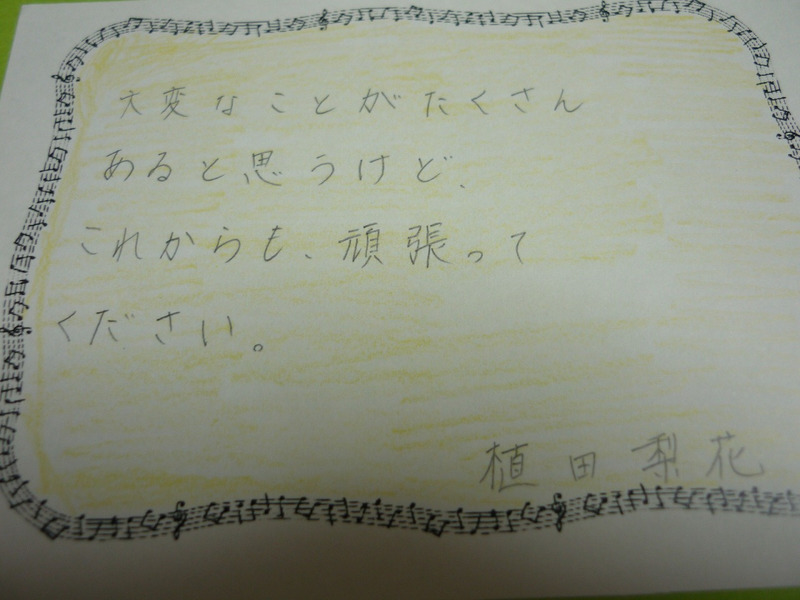 大変なことがたくさん
あると思うけど、
これからも、頑張って
ください。
植田梨花